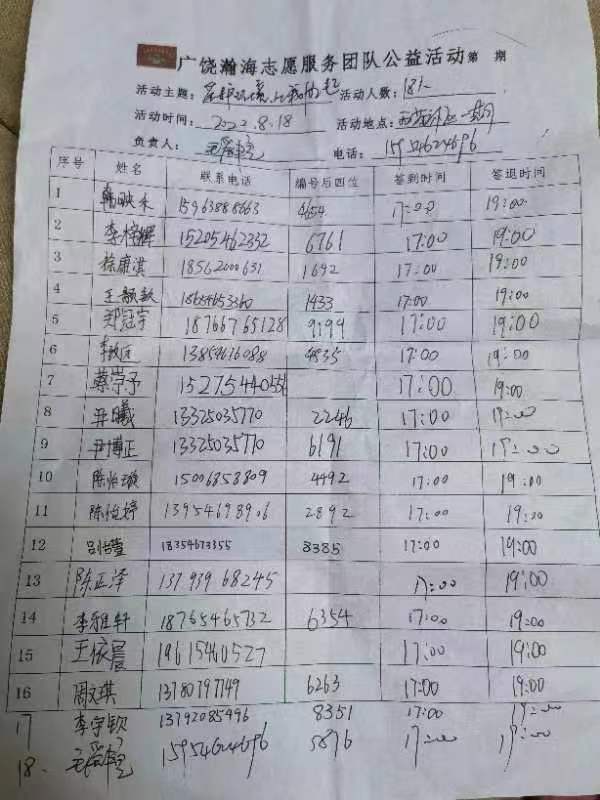 广饶瀚海志愿服务团队公益活动第 期
活动主题： 活动人数：18人
活动时间：2022.8.18 活动地点：
负责人： 电话：15954624696
序号 姓名 联系电话 编号后四位 签到时间 签退时间
1 15963888663 4654 17:00 19:00
2 李梓辉 15205462352 6761 17:00 19:00
3 徐康淇 18562000631 1692 17:00 19:00
4 王颢毅 1433 17:00 19:00
5 郑冠宇 18766765128 9199 17:00 19:00
6 13854616088 4835 17:00 19:00
7 蔡崇予 17:00 19:00
8 尹曦 13325035770 2246 17:00 19:00
9 尹博正 13325035770 6191 17:00 19:00
10 陈怡璇 15006858809 4492 17:00 19:00
11 陈怡婷 13954698906 2892 17:00 19:00
12 吕怡萱 18354673355 8385 17:00 19:00
13 陈正泽 13793968245 17:00 19:00
14 李雅轩 18765465732 6354 17:00 19:00
15 王依晨 19615460527 17:00 19:00
16 周文琪 13780797149 6263 17:00 19:00
17 李宇钦 13792085496 8351 17:00 19:00
18. 15954624696 5876 17:00 19:00